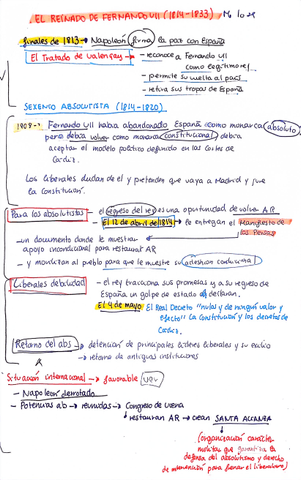 EL REINADO DE FERNANDO VII (1814-1833)
finales de 1813 → Napoleón firma la paz con España
El Tratado de Valençay → reconoce a Fernando VII
como legítimo rey
→ permite su vuelta al país
→ retira sus tropas de España
SEXENIO ABSOLUTISTA (1814-1820)
1808 → Fernando VII había abandonado España como monarca absoluto
pero debía volver como monarca constitucional, debía
aceptar el modelo político definido en las Cortes de
Cádiz.
Los liberales dudan de él y pretenden que vaya a Madrid y jure
la Constitución.
Para los absolutistas → el regreso del rey es una oportunidad de volver AR
→ El 12 de abril de 1814 → le entregan el Manifiesto de
los Persas
→ un documento donde le muestran
apoyo incondicional para restaurar AR
→ y movilizan al pueblo para que le muestre su adhesión
Liberales debilidad → el rey traiciona sus promesas y a su regreso de
España un golpe de estado
El 4 de mayo El Real Decreto "nulos y de ningún valor y
efecto" la Constitución y los decretos de
Cádiz.
Retorno del abs → detención de principales líderes liberales y su exilio
→ retorno de antiguas instituciones
Situación internacional → favorable
- Napoleón derrotado
- Potencias ab → reunidas → Congreso de Viena
↳ restauran AR → crean SANTA ALIANZA
(organización carácter
militar que garantiza la
defensa del absolutismo y derecho
de intervención para frenar el liberalismo)